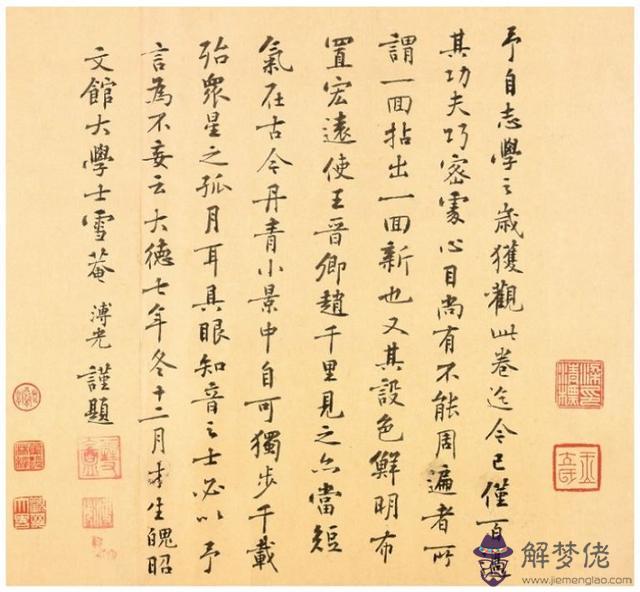 予自志學之歳獲觀此卷迄今已僅百過
其功夫巧密處心目尚有不能周遍者所
謂一回拈出一回新也又其設色鮮明布
置宏遠使王晉卿趙千里見之亦當短
氣在古今丹青小景中自可獨步千載
殆衆星之孤月耳具眼知音之士必以予
言為不妄云大德七年冬十二月才生魄昭
文館大學士雪菴溥光謹題
解梦佬
www.jiemenglao.com